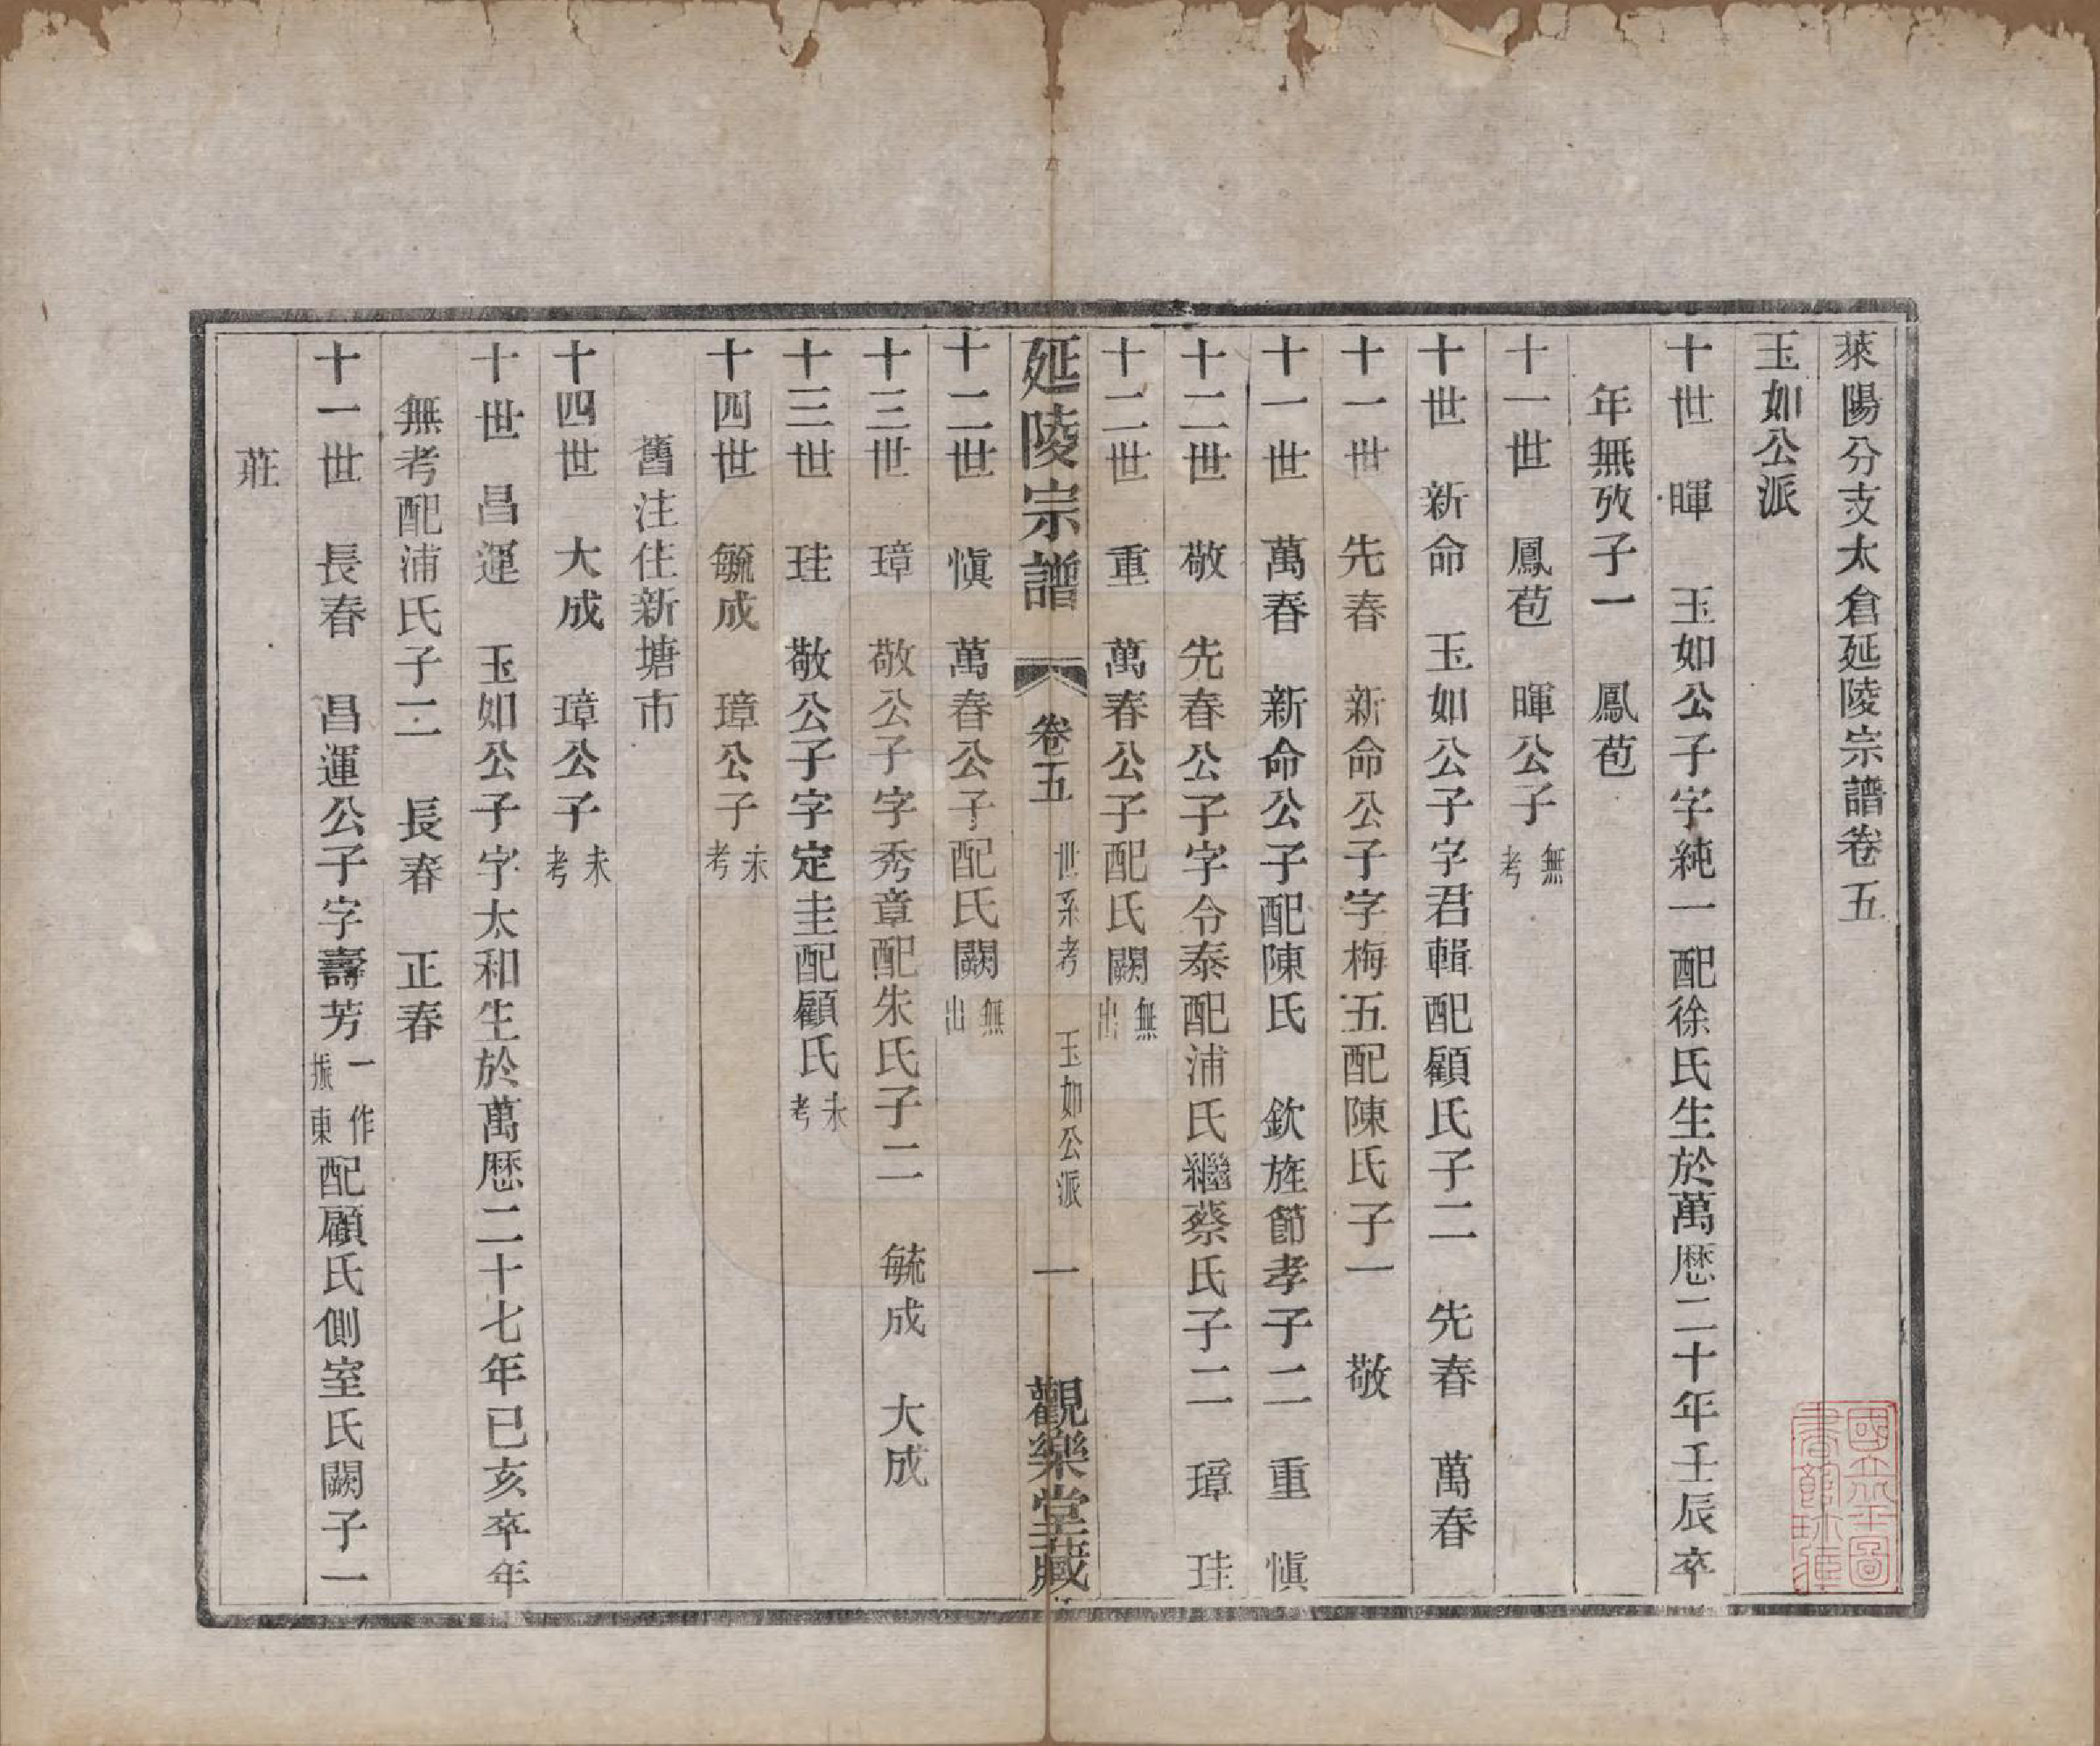 萊陽分支太倉延陵宗譜卷五
玉如公派
十世 暉 玉如公子字純一配徐氏生於萬歷二十年壬辰卒
年無攷子一 鳳苞
十一世 鳳苞 暉公子無考
十世 新命 玉如公子字君輯配顧氏子二 先春 萬春
十一世 先春 新命公子字梅五配陳氏子一 敬
十一世 萬春 新命公子配陳氏 欽旌節孝子二 重 愼
十二世 敬 先春公子字令泰配浦氏繼蔡氏子二 璋 珪
十二世 重 萬春公子配氏闕無出
延陵宗譜 卷五 世系考 玉如公派 一 觀樂堂藏
十二世 愼 萬春公子配氏闕無出
十三世 璋 敬公子字秀章配朱氏子二 毓成 大成
十三世 珪 敬公子字定圭配顧氏未考
十四世 毓成 璋公子未考
舊注住新塘市
十四世 大成 璋公子未考
十世 昌運 玉如公子字太和生於萬歷二十七年已亥卒年
無考配浦氏子二 長春 正春
十一世 長春 昌運公子字壽芳一作振東配顧氏側室氏闕子一
莊
國立北平圖
書館珍藏